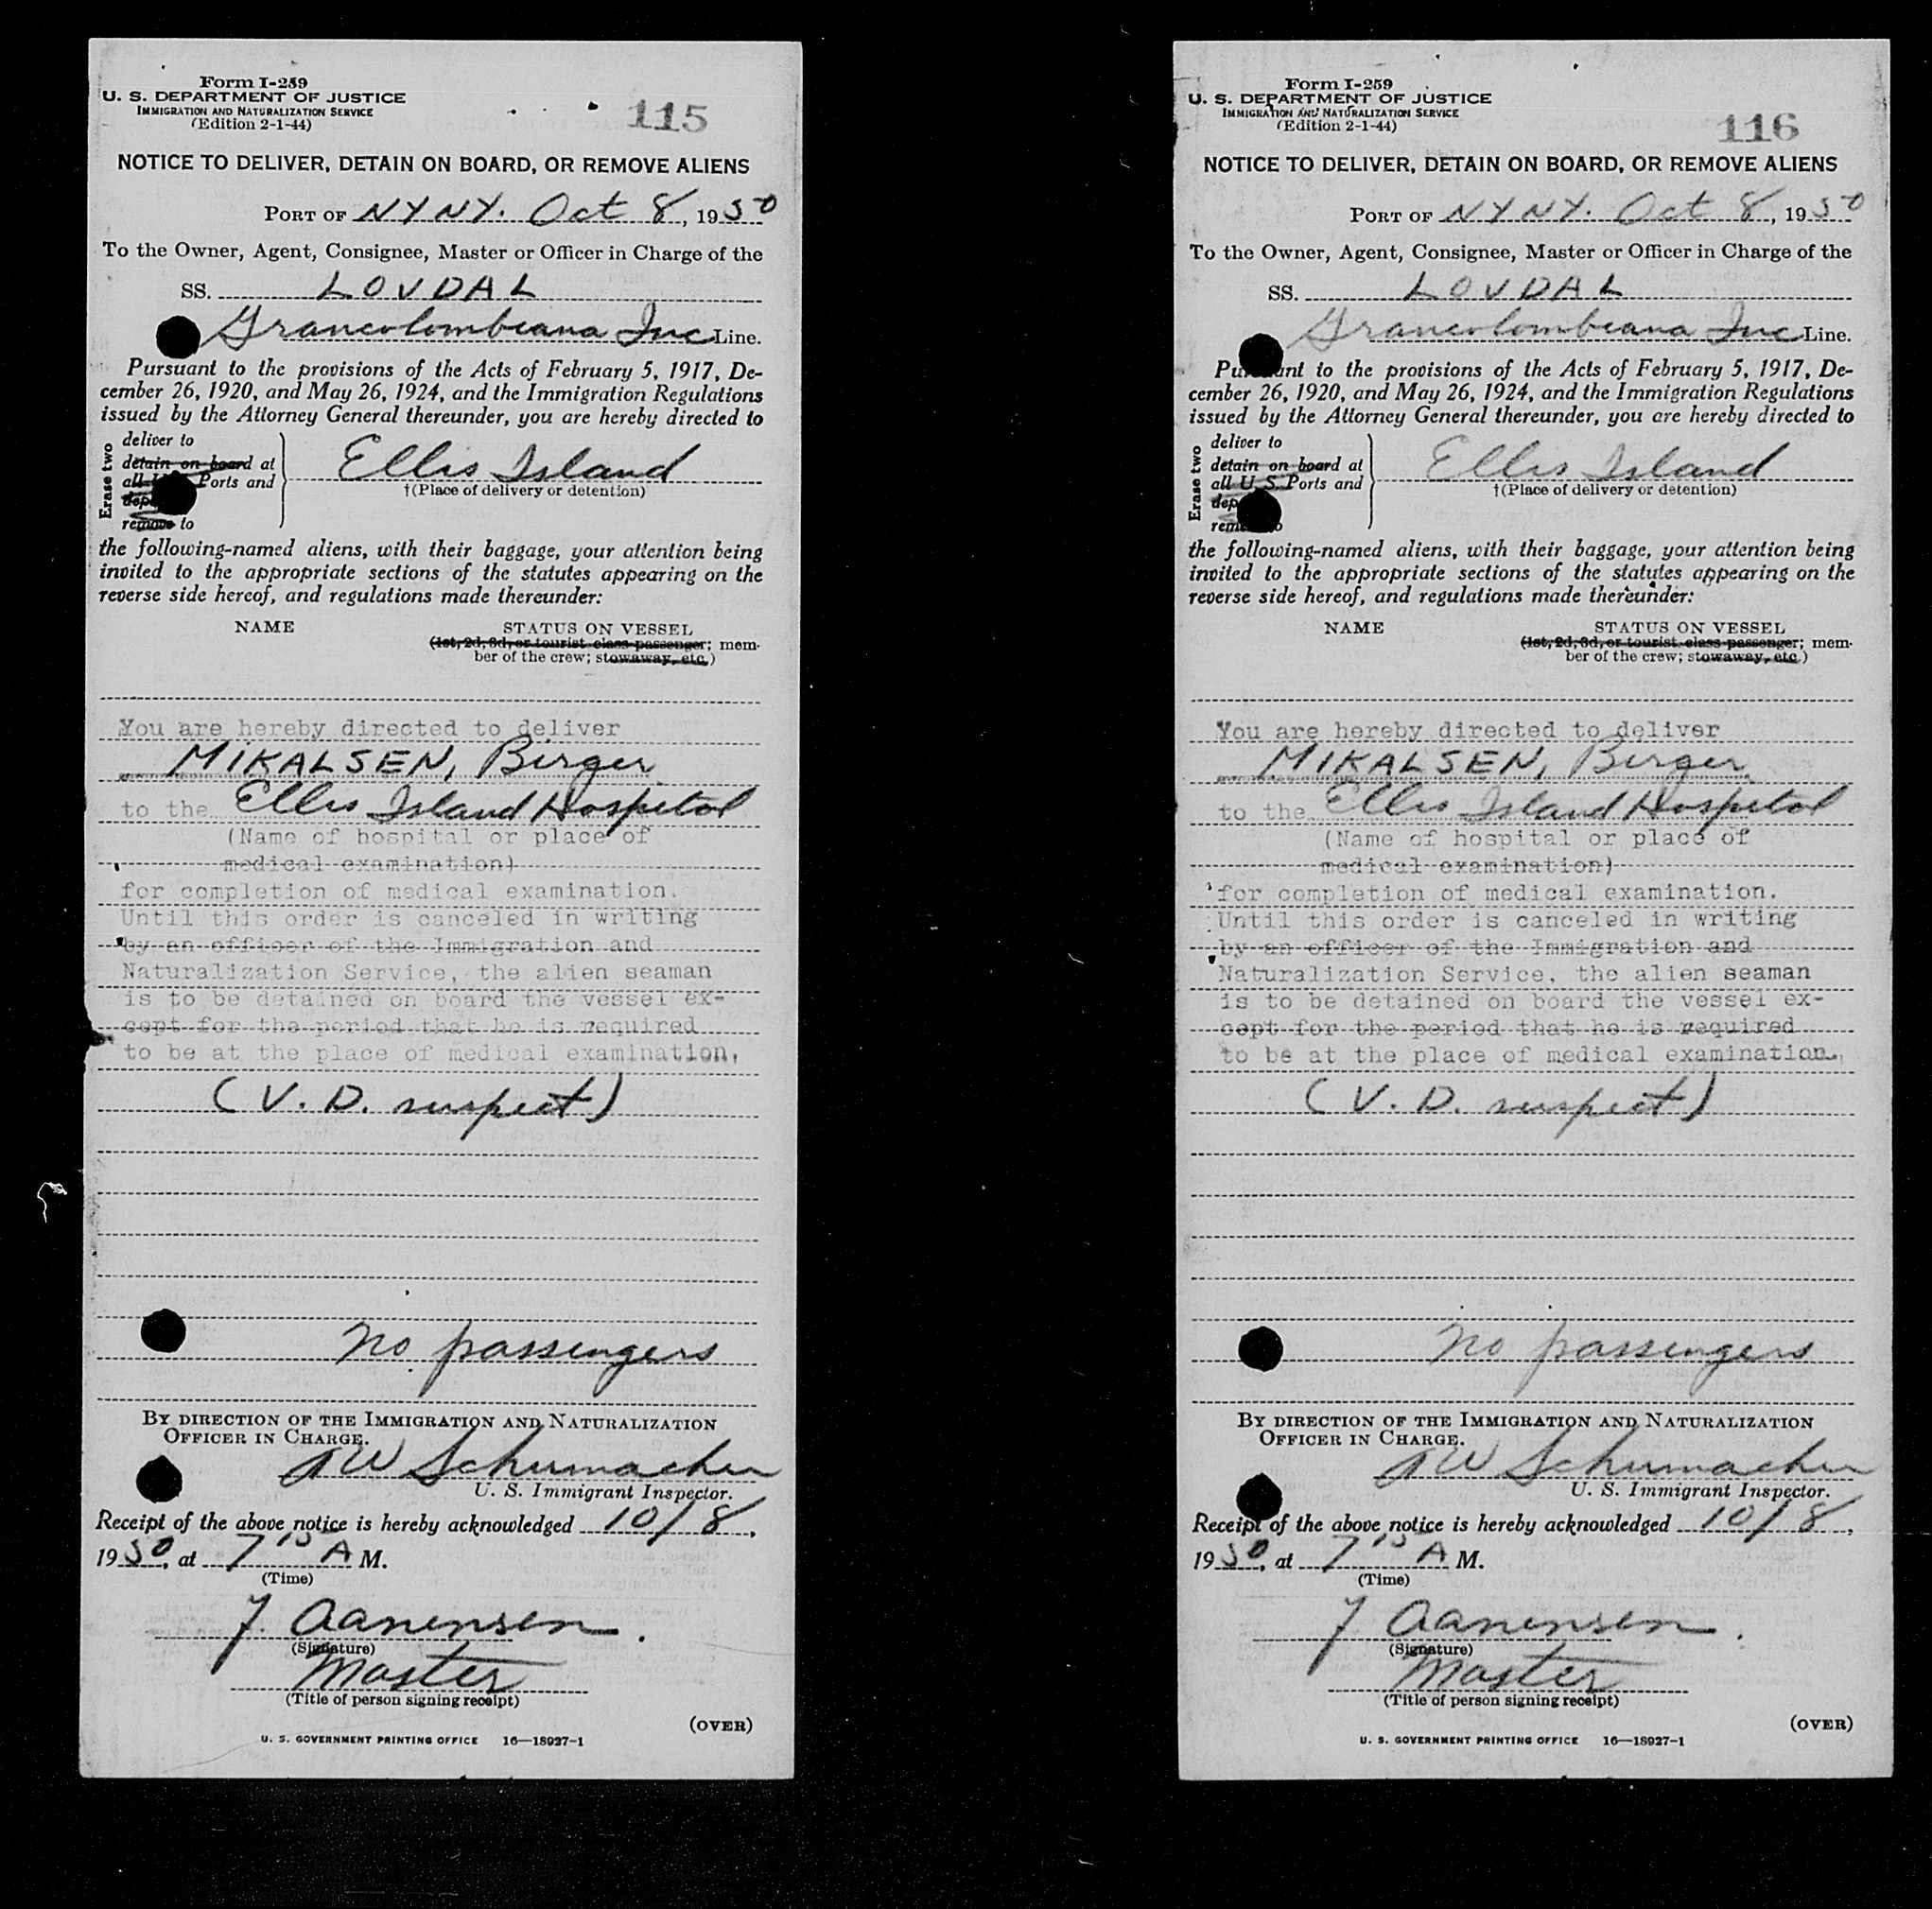 Form I-259
U. S. DEPARTMENT OF JUSTICE
IMMIGRATION AND NATURALIZATION SERVICE
(Edition 2-1-44)
115
NOTICE TO DELIVER, DETAIN ON BOARD, OR REMOVE ALIENS
PORT OF NY NY. Oct 8, 1950
To the Owner, Agent, Consignee, Master or Officer in Charge of the
SS. LOVDAL
Grancolombiana Inc Line.
Pursuant to the provisions of the Acts of February 5, 1917, De-
cember 26, 1920, and May 26, 1924, and the Immigration Regulations
issued by the Attorney General thereunder, you are hereby directed to
Erase two
deliver to
detain on board at
all Ports and
remove to
Ellis Island
†(Place of delivery or detention)
the following-named aliens, with their baggage, your attention being
invited to the appropriate sections of the statutes appearing on the
reverse side hereof, and regulations made thereunder:
NAME STATUS ON VESSEL
(1st, 2d, 3d, or tourist class passenger; mem-
ber of the crew; stowaway, etc.)
You are hereby directed to deliver
MIKALSEN, Birger
to the Ellis Island Hospital
(Name of hospital or place of
medical examination)
for completion of medical examination.
Until this order is canceled in writing
by an officer of the Immigration and
Naturalization Service, the alien seaman
is to be detained on board the vessel ex-
cept for the period that he is required
to be at the place of medical examination.
(V. D. suspect)
No passengers
BY DIRECTION OF THE IMMIGRATION AND NATURALIZATION
OFFICER IN CHARGE.
W Schumacher
U. S. Immigrant Inspector.
Receipt of the above notice is hereby acknowledged 10/8,
1950, at 7 15 A M.
(Time)
J. Aanensen.
(Signature)
Master
(Title of person signing receipt)
(OVER)
U. S. GOVERNMENT PRINTING OFFICE 16—18927-1
Form I-259
U. S. DEPARTMENT OF JUSTICE
IMMIGRATION AND NATURALIZATION SERVICE
(Edition 2-1-44)
116
NOTICE TO DELIVER, DETAIN ON BOARD, OR REMOVE ALIENS
PORT OF NY NY. Oct 8, 1950
To the Owner, Agent, Consignee, Master or Officer in Charge of the
SS. LOVDAL
Grancolombiana Inc Line.
Pursuant to the provisions of the Acts of February 5, 1917, De-
cember 26, 1920, and May 26, 1924, and the Immigration Regulations
issued by the Attorney General thereunder, you are hereby directed to
Erase two
deliver to
detain on board at
all U. S. Ports and
Ellis Island
†(Place of delivery or detention)
the following-named aliens, with their baggage, your attention being
invited to the appropriate sections of the statutes appearing on the
reverse side hereof, and regulations made thereunder:
NAME STATUS ON VESSEL
(1st, 2d, 3d, or tourist class passenger; mem-
ber of the crew; stowaway, etc.)
You are hereby directed to deliver
MIKALSEN, Birger
to the Ellis Island Hospital
(Name of hospital or place of
medical examination)
for completion of medical examination.
Until this order is canceled in writing
by an officer of the Immigration and
Naturalization Service, the alien seaman
is to be detained on board the vessel ex-
cept for the period that he is required
to be at the place of medical examination.
(V. D. suspect)
No passengers
BY DIRECTION OF THE IMMIGRATION AND NATURALIZATION
OFFICER IN CHARGE.
W Schumacher
U. S. Immigrant Inspector.
Receipt of the above notice is hereby acknowledged 10/8,
1950, at 7 15 A M.
(Time)
J Aanensen.
(Signature)
Master
(Title of person signing receipt)
(OVER)
U. S. GOVERNMENT PRINTING OFFICE 16—18927-1